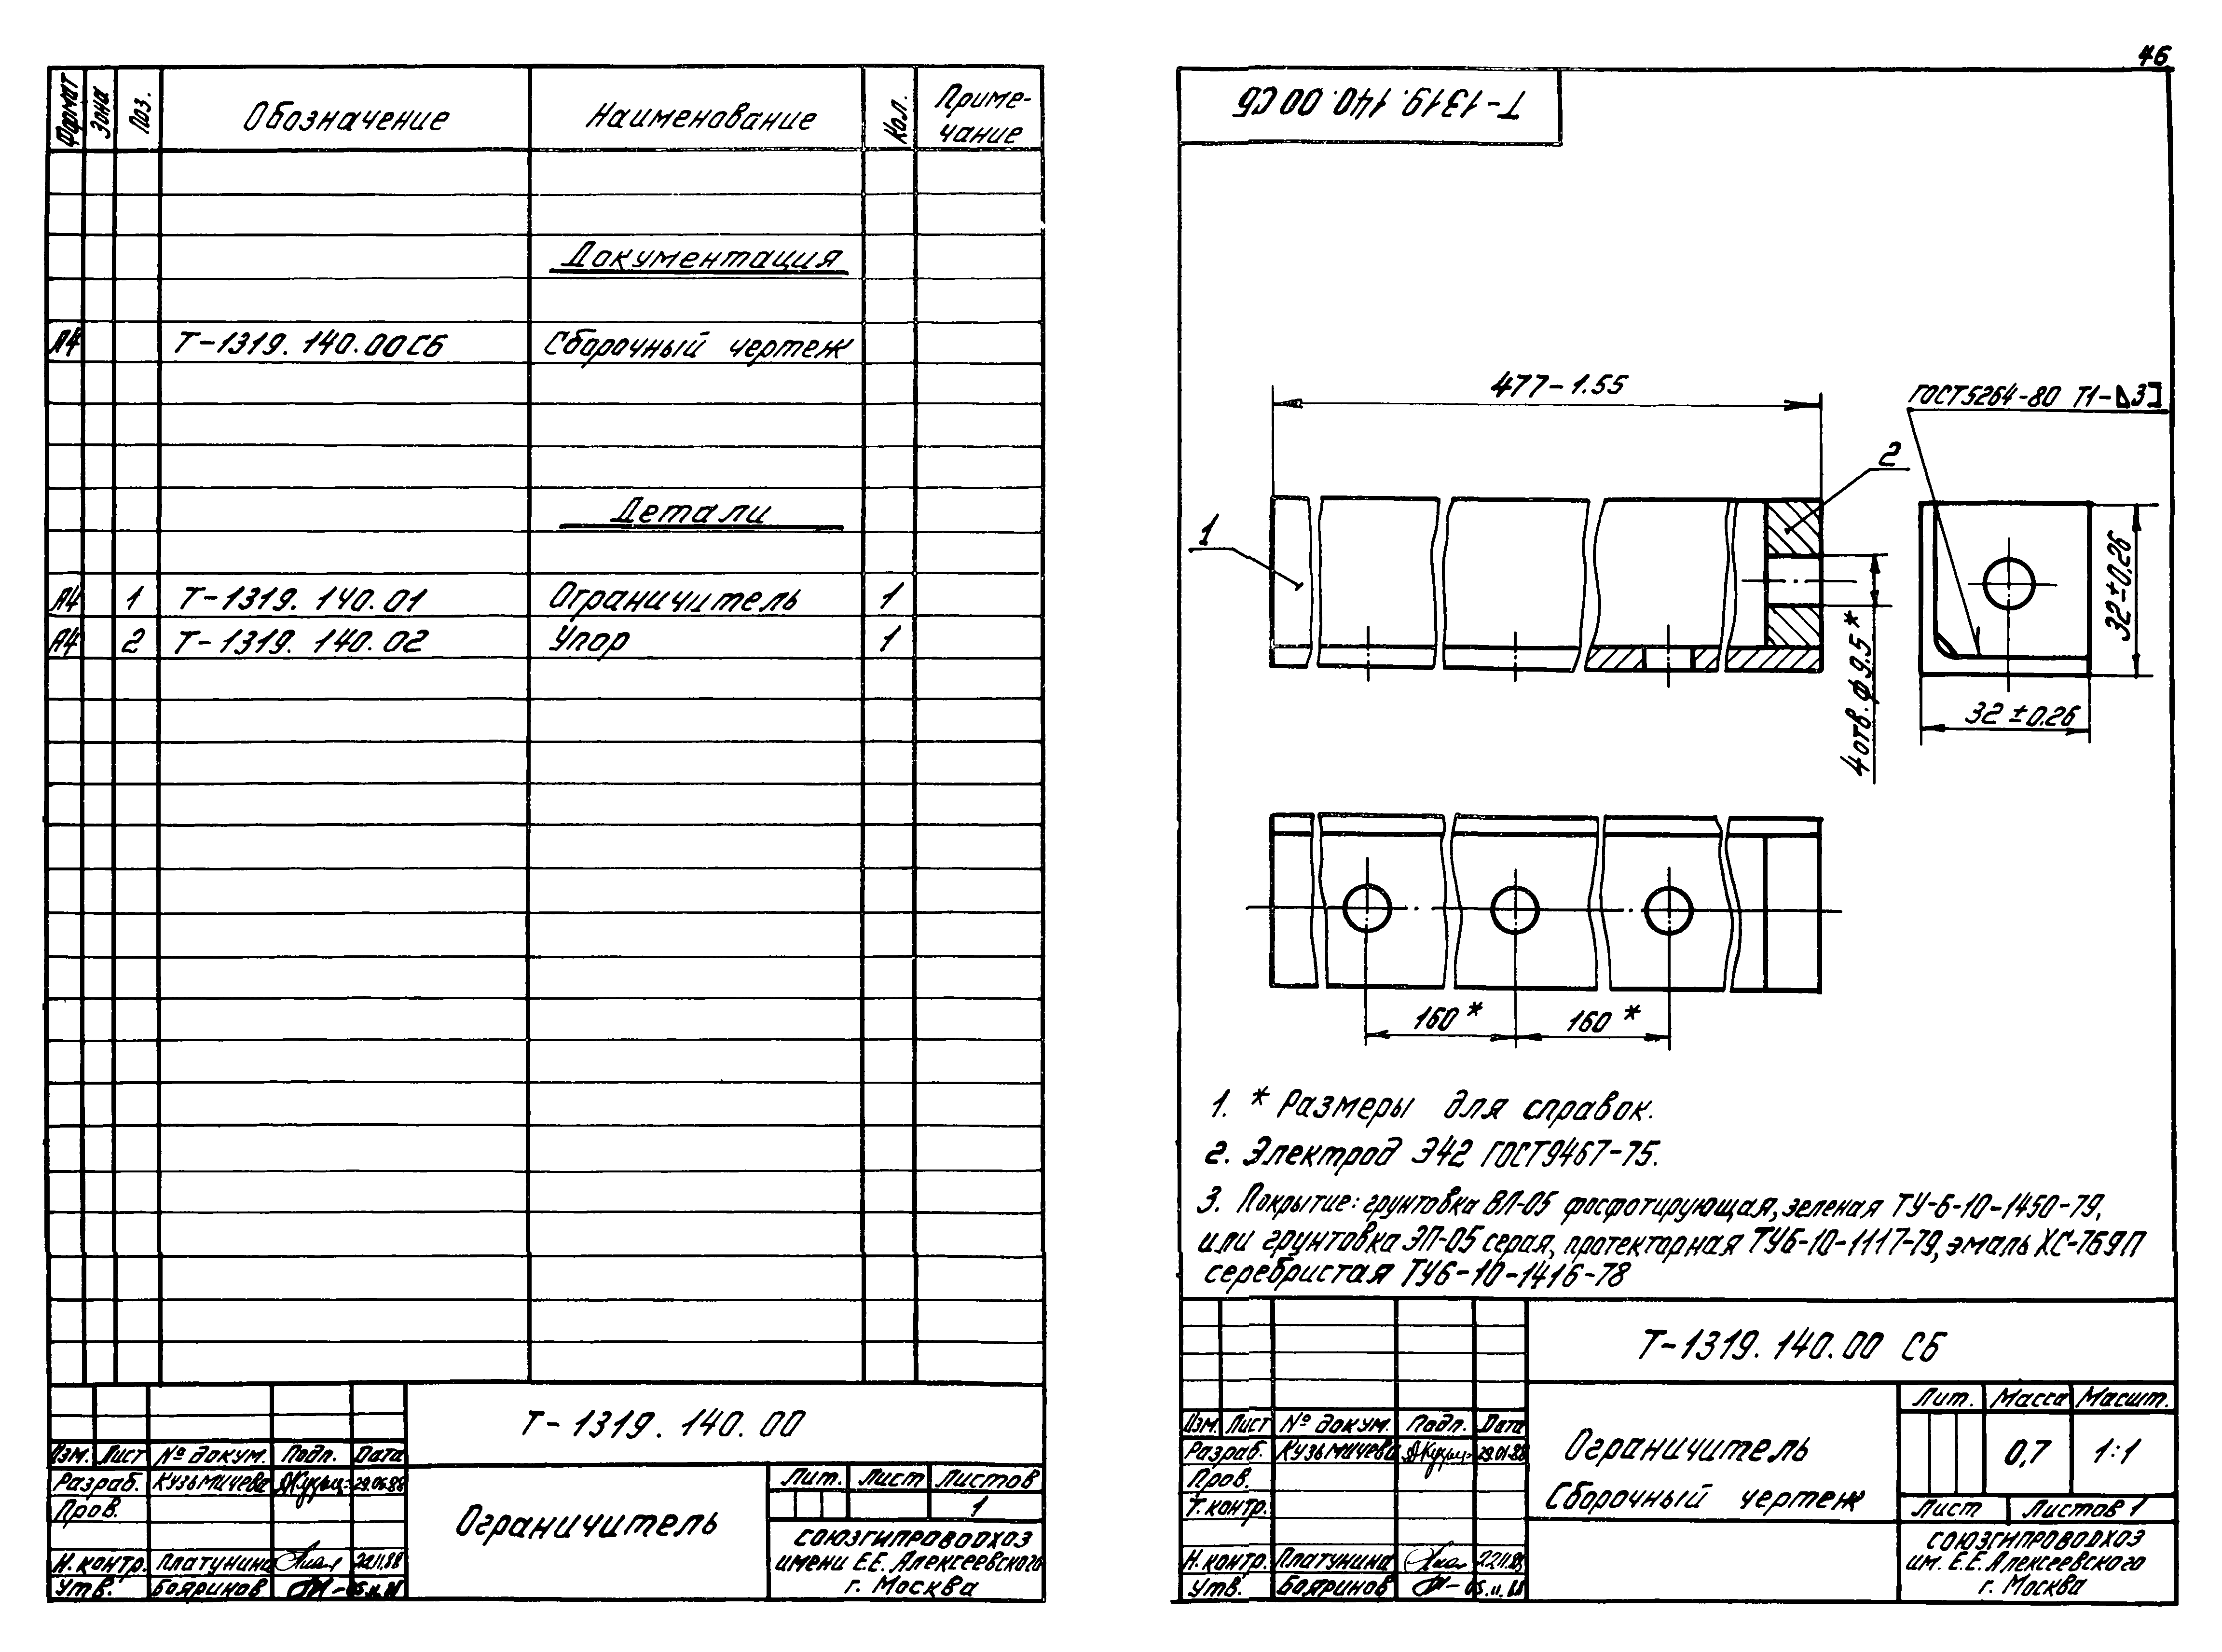 Формат Зона Поз. Обозначение Наименование Кол. Приме-
чание
Документация
А4 Т-1319. 140.00 СБ Сборочный чертеж
Детали
А4 1 Т-1319. 140.01 Ограничитель 1
А4 2 Т-1319. 140.02 Упор 1
Т-1319. 140.00
Изм. Лист № докум. Подп. Дата
Разраб. Кузьмичева 29.06.88
Пров.
Н. контр. Платунина 22.11.88
Утв. Бояринов
Ограничитель
Лит. Лист Листов
1
СОЮЗГИПРОВОДХОЗ
имени Е.Е. Алексеевского
г. Москва
46
Т-1319. 140. 00 СБ
477-1.55
ГОСТ 5264-80 Т1-⊿3]
2
1
4 отв. ф 9.5*
32±0,26
32±0.26
160*
160*
1. * Размеры для справок.
2. Электрод Э42 ГОСТ 9467-75.
3. Покрытие: грунтовка ВЛ-05 фосфотирующая, зеленая ТУ-6-10-1450-79,
или грунтовка ЭП-05 серая, протекторная ТУ6-10-1117-79, эмаль ХС-769П
серебристая ТУ6-10-1416-78
Т-1319. 140.00 СБ
Изм. Лист № докум. Подп. Дата
Разраб. Кузьмичева
Пров.
Т. контр.
Н. контр. Платунина 22.11.88
Утв. Бояринов
Ограничитель
Сборочный чертеж
Лит. Масса Масшт.
0,7 1:1
Лист Листов 1
СОЮЗГИПРОВОДХОЗ
им. Е.Е. Алексеевского
г. Москва